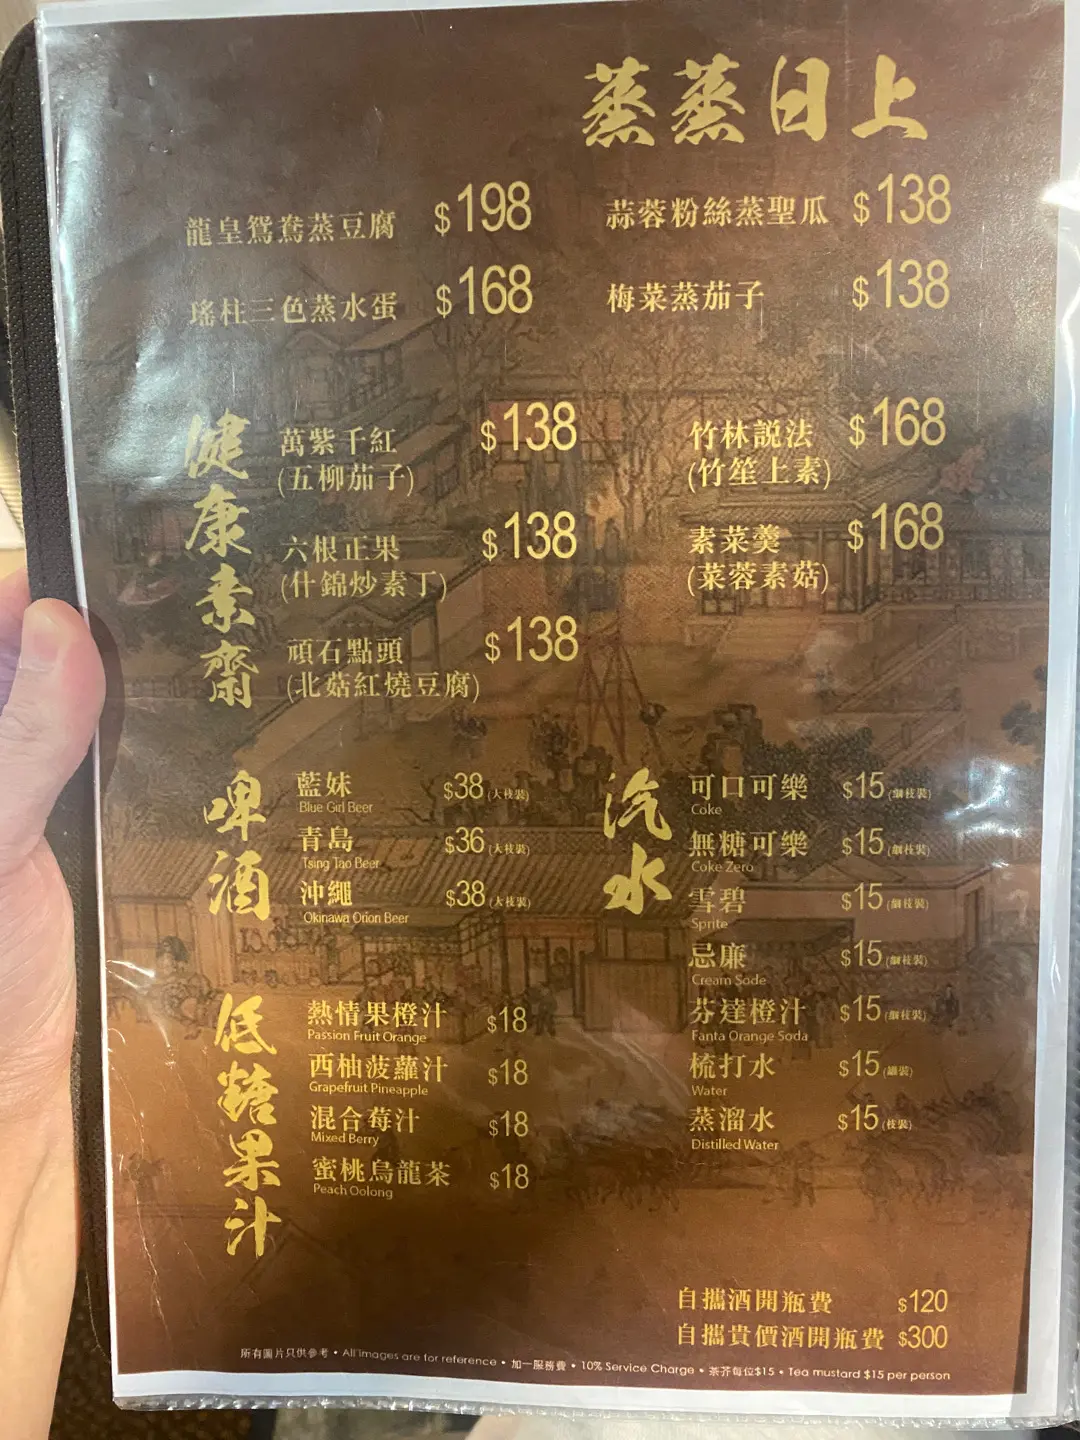 蒸蒸日上
龍皇鴛鴦蒸豆腐 $198
蒜蓉粉絲蒸聖瓜 $138
瑤柱三色蒸水蛋 $168
梅菜蒸茄子 $138
健康素齋
萬紫千紅 $138
(五柳茄子)
竹林説法 $168
(竹笙上素)
六根正果 $138
(什錦炒素丁)
素菜羹 $168
(菜蓉素菇)
頑石點頭 $138
(北菇紅燒豆腐)
啤酒
藍妹 $38 (大枝裝)
Blue Girl Beer
青島 $36 (大枝裝)
Tsing Tao Beer
沖繩 $38 (大枝裝)
Okinawa Orion Beer
汽水
可口可樂 $15 (細枝裝)
Coke
無糖可樂 $15 (細枝裝)
Coke Zero
雪碧 $15 (細枝裝)
Sprite
忌廉 $15 (細枝裝)
Cream Sode
芬達橙汁 $15 (細枝裝)
Fanta Orange Soda
梳打水 $15 (罐裝)
Water
蒸溜水 $15 (枝裝)
Distilled Water
低糖果汁
熱情果橙汁 $18
Passion Fruit Orange
西柚菠蘿汁 $18
Grapefruit Pineapple
混合莓汁 $18
Mixed Berry
蜜桃烏龍茶 $18
Peach Oolong
自攜酒開瓶費 $120
自攜貴價酒開瓶費 $300
所有圖片只供參考 • All images are for reference • 加一服務費 • 10% Service Charge • 茶芥每位$15 • Tea mustard $15 per person